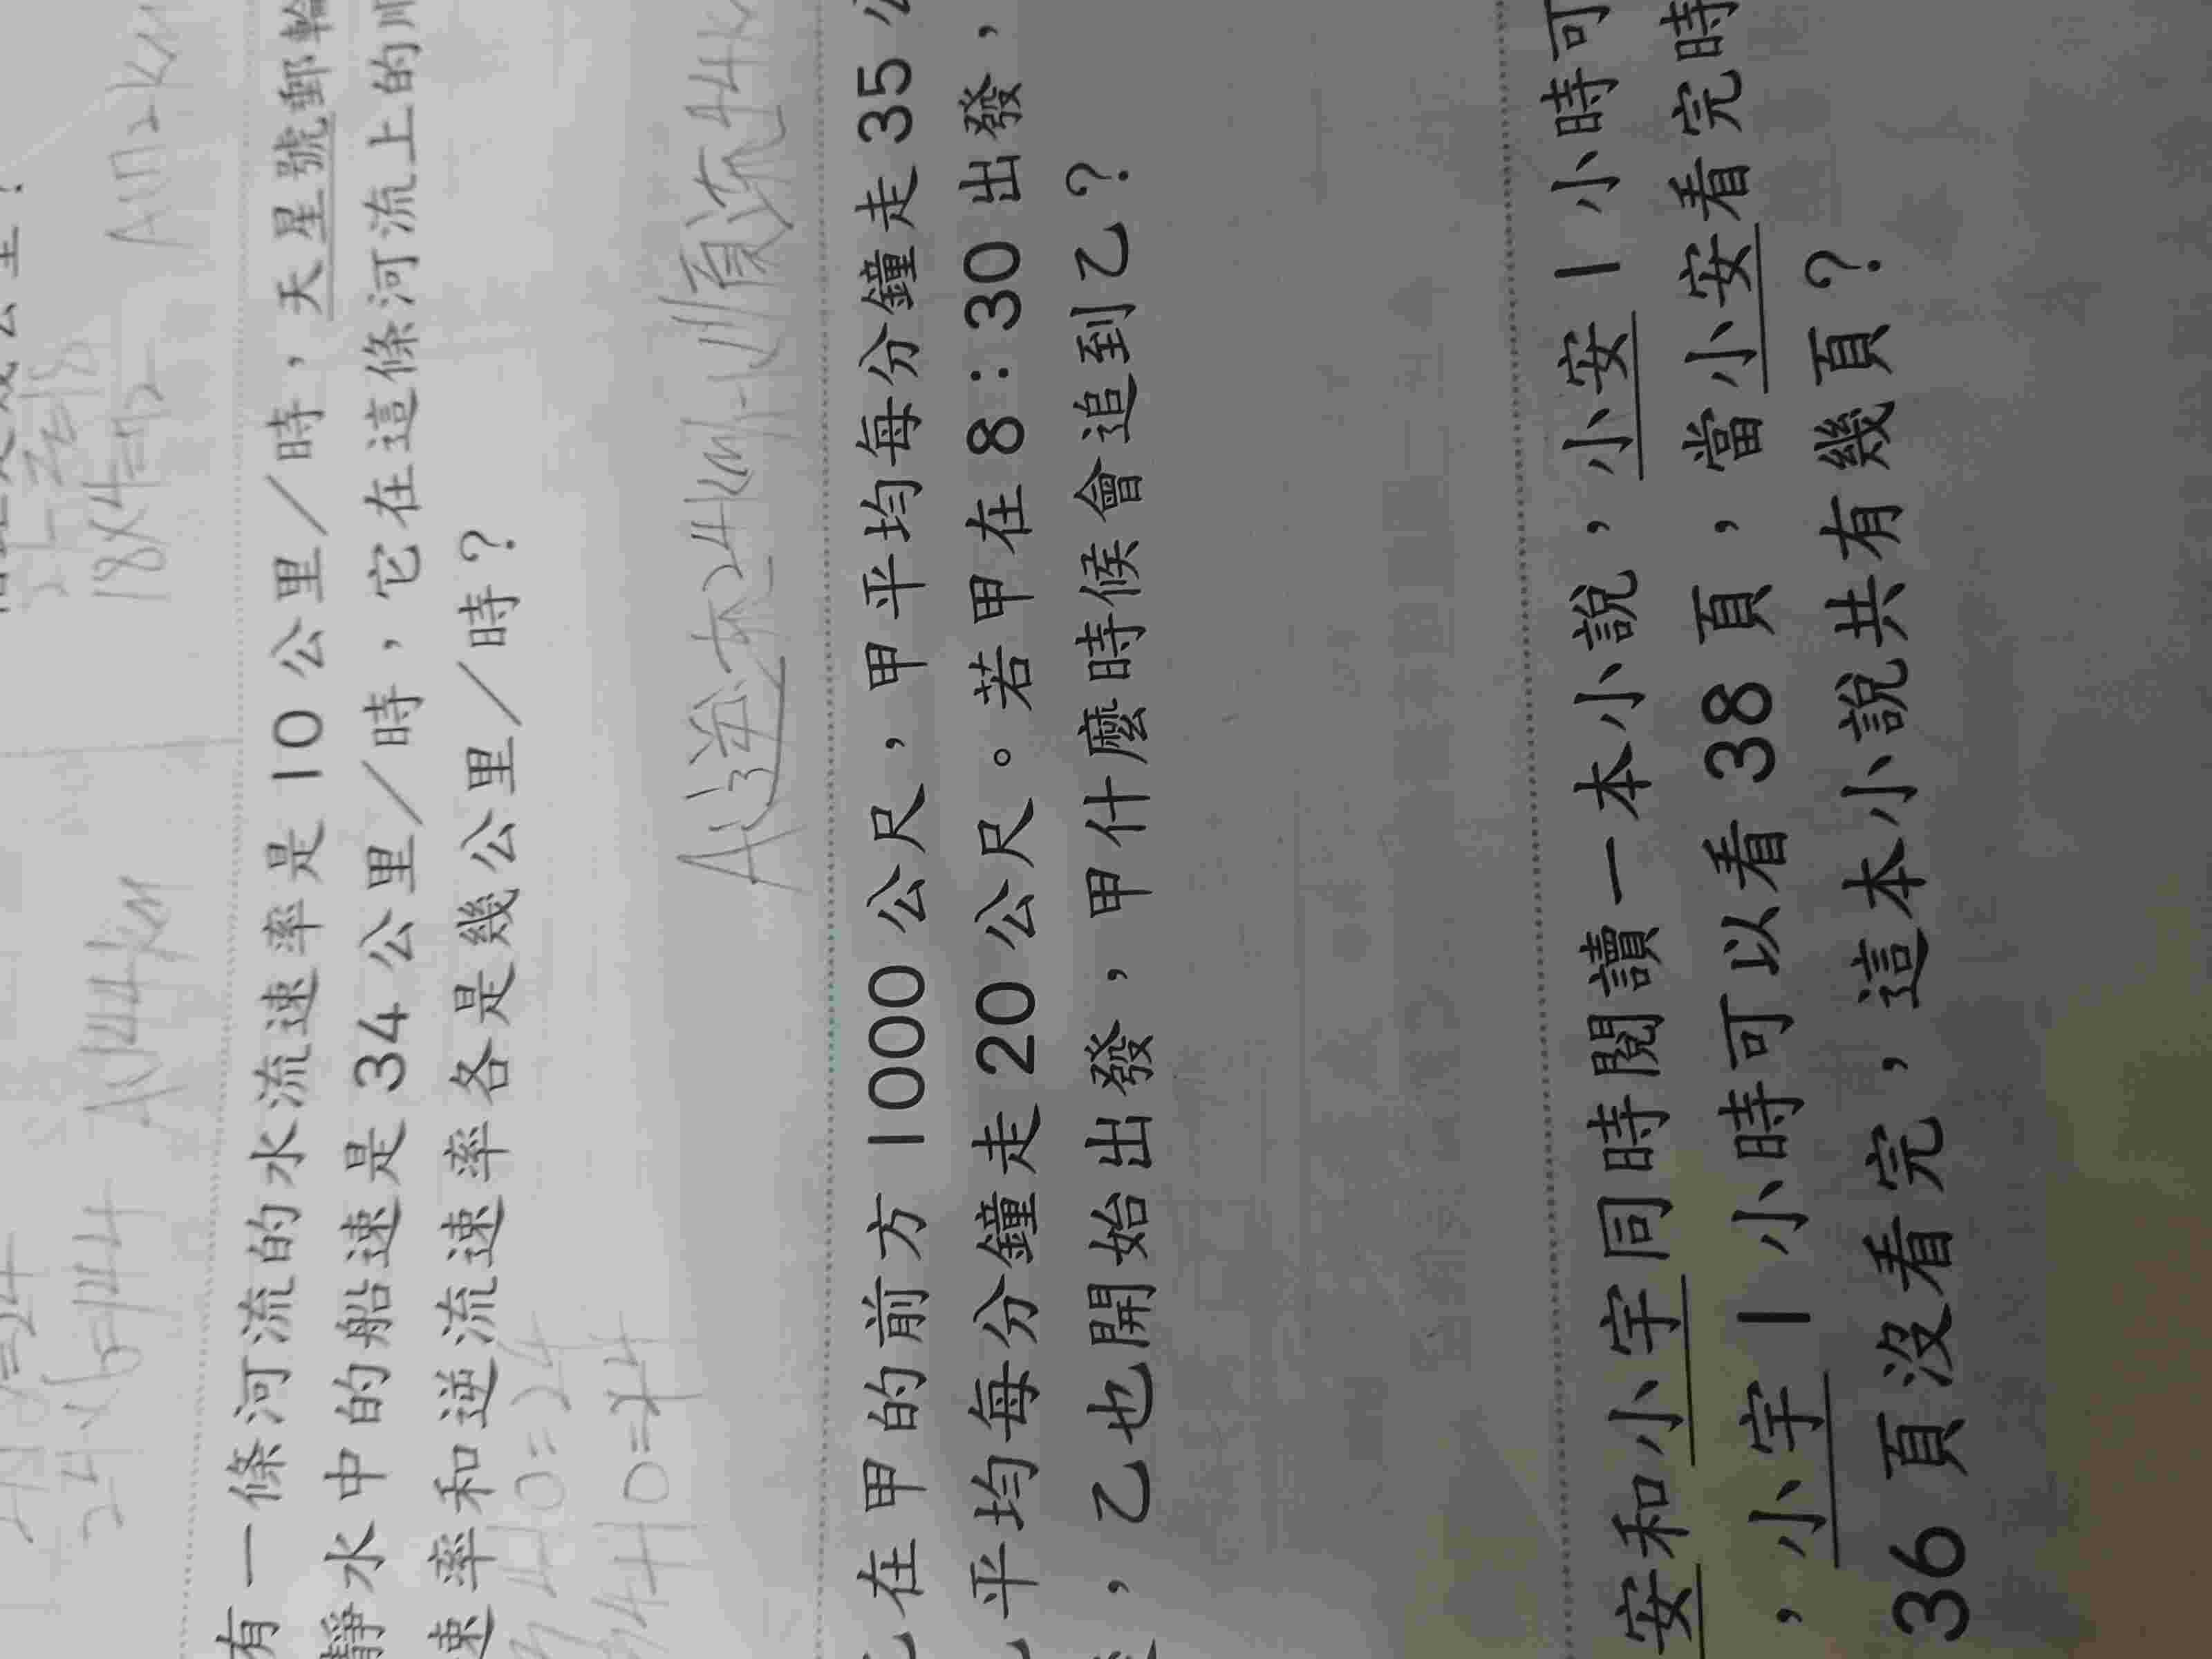 18×4=72
24×6=144 A:144km
有一條河流的水流速率是10公里／時，天星號郵輪
靜水中的船速是34公里／時，它在這條河流上的
速率和逆流速率各是幾公里／時？
34+10=44
A:逆流24km,順流44
在甲的前方1000公尺，甲平均每分鐘走35公
平均每分鐘走20公尺。若甲在8：30出發，
，乙也開始出發，甲什麼時候會追到乙？
安和小宇同時閱讀一本小說，小安1小時可
，小宇1小時可以看38頁，當小安看完時
36頁沒看完，這本小說共有幾頁？